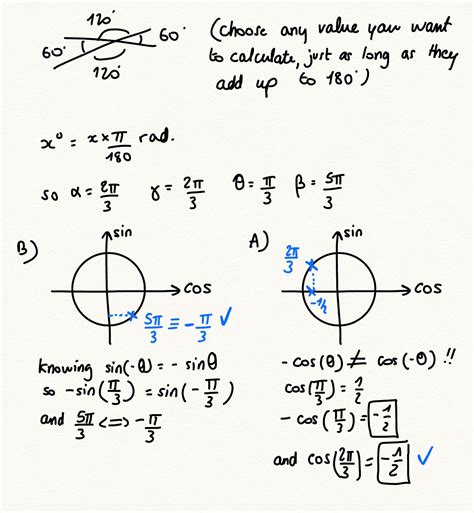 120°
60°
60°
120°
(choose any value you want
to calculate, just as long as they
add up to 180°)
x° = x×π/180 rad.
so α = 2π/3 γ = 2π/3 θ = π/3 β = 5π/3
B)
sin
cos
5π/3 ≡ -π/3 ✓
knowing sin(-θ) = - sinθ
so -sin(π/3) = sin(-π/3)
and 5π/3 <=> -π/3
A)
sin
2π/3
cos
-1/2
- cos(θ) ≠ cos(-θ) !!
cos(π/3) = 1/2
- cos(π/3) = -1/2
and cos(2π/3) = -1/2 ✓